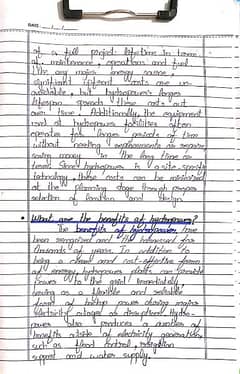 DATE
of a full project lifetime in terms
of maintenance, operations and fuel
like any major energy source,
significant upfront costs are un-
avoidable, but hydropower's longer
lifespan spreads these costs out
over time. Additionally, the equipment
used at hydropower facilities often
operates for longer periods of time
without needing replacements or repairs
saving money in the long time or
hydropower is a site-specific
technology, these costs can be minimized
at the planning stage through proper
selection of location and design
• What are the benefits of hydropower?
The benefits of hydropower have
been recognized and
thousands of years. In addition to
being a clean and cost-effective form
of energy, hydropower plants can provide
power to the grid immediately
serving as a flexible and reliable
form of backup power during major
electricity outages or disruptions. Hydro-
power also produces a number of
benefits outside of electricity generation
such as flood control, irrigation
support and water supply.